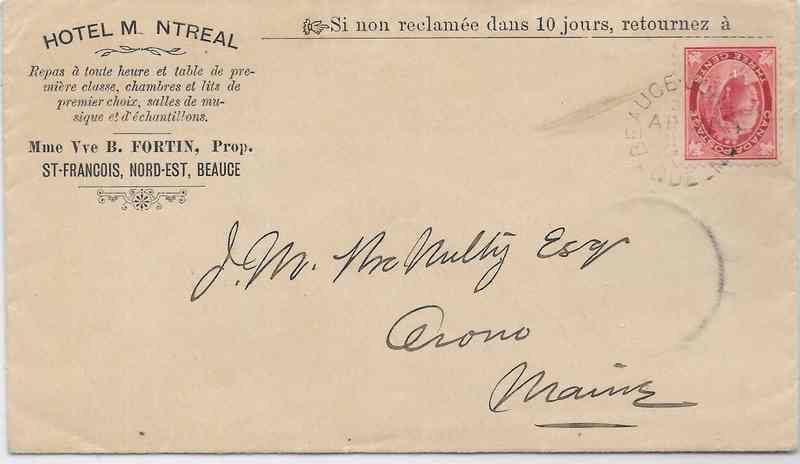 HOTEL M NTREAL
Repas à toute heure et table de pre-
mière classe, chambres et lits de
premier choix, salles de mu-
sique et d'échantillons.
Mme Vve B. FORTIN, Prop.
ST-FRANCOIS, NORD-EST, BEAUCE
Si non reclamée dans 10 jours, retournez à
THREE CENTS
CANADA POSTAGE
BEAUCE
AP
QUE
J. M. McNulty Esq
Orono
Maine